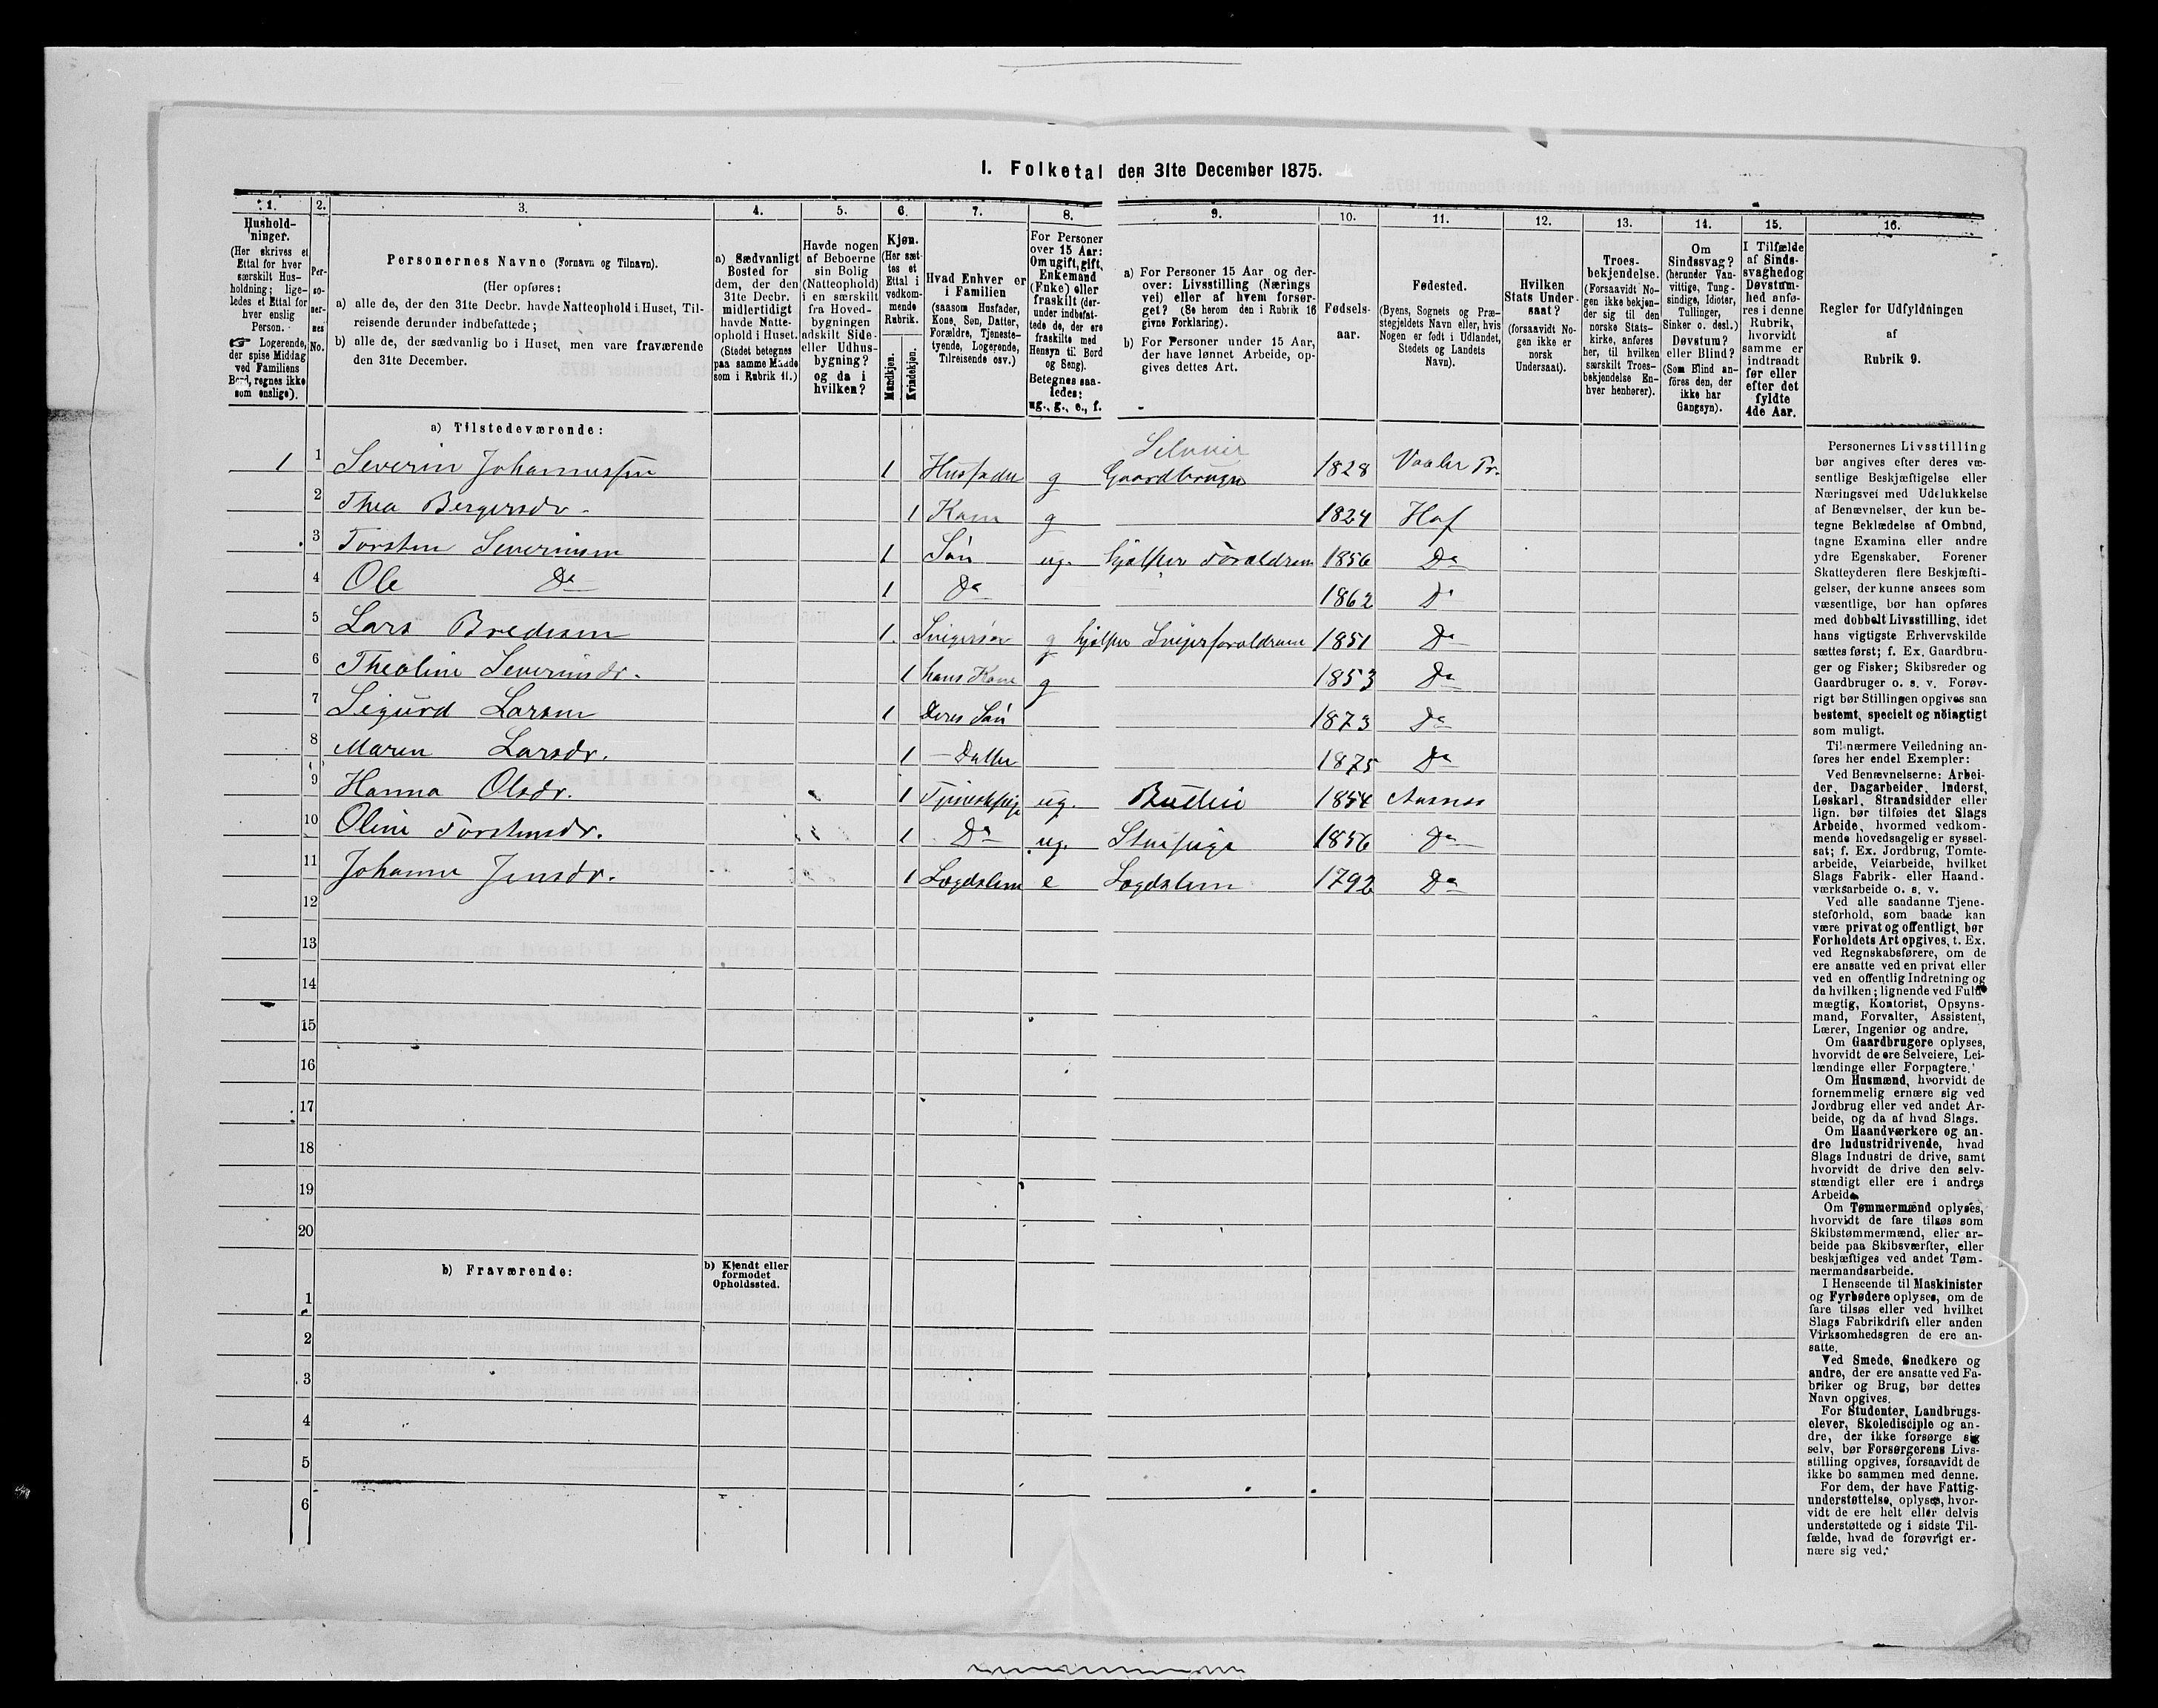 I. Folketal den 31te December 1875.
1. 2. 3. 4. 5. 6. 7. 8. 9. 10. 11. 12. 13. 14. 15. 16.
Husholdninger.
(Her skrives et
Ettal for hver
særskilt Hus-
holdning; lige-
ledes et Ettal for
hver enslig
Person.
☞ Logerende,
der spise Middag
ved Familiens
Bord, regnes ikke
som enslige).
Per-
so-
ner-
nes
No.
Personernes Navne (Fornavn og Tilnavn).
(Her opføres:
a) alle de, der den 31te Decbr. havde Natteophold i Huset, Til-
reisende derunder indbefattede;
b) alle de, der sædvanlig bo i Huset, men vare fraværende
den 31te December.
a) Sædvanligt
Bosted for
dem, der den
31te Decbr.
midlertidigt
havde Natte-
ophold i Huset.
(Stedet betegnes
paa samme Maade
som i Rubrik 11.)
Havde nogen
af Beboerne
sin Bolig
(Natteophold)
i en særskilt
fra Hoved-
bygningen
adskilt Side-
eller Udhus-
bygning?
og da i
hvilken?
Kjøn.
(Her sæt-
tes et
Ettal i
vedkom-
mende
Rubrik.
Mandkjøn.
Kvindekjøn.
Hvad Enhver er
i Familien
(saasom Husfader,
Kone, Søn, Datter,
Forældre, Tjeneste-
tyende, Logerende,
Tilreisende osv.)
For Personer
over 15 Aar:
Om ugift, gift,
Enkemand
(Enke) eller
fraskilt (der-
under indbefat-
tede de, der ere
fraskilte med
Hensyn til Bord
og Seng).
Betegnes saa-
ledes:
ug., g., e., f.
a) For Personer 15 Aar og der-
over: Livsstilling (Nærings
vei) eller af hvem forsør-
get? (Se herom den i Rubrik 16
givne Forklaring).
b) For Personer under 15 Aar,
der have lønnet Arbeide, op-
gives dettes Art.
Fødsels-
aar.
Fødested.
(Byens, Sognets og Præ-
stegjeldets Navn eller, hvis
Nogen er født i Udlandet,
Stedets og Landets
Navn).
Hvilken
Stats Under-
saat?
(forsaavidt No-
gen ikke er
norsk
Undersaat).
Troes-
bekjendelse.
(Forsaavidt No-
gen ikke bekjen-
der sig til den
norske Stats-
kirke, anføres
her, til hvilken
særskilt Troes-
bekjendelse En-
hver henhører).
Om
Sindssvag?
(herunder Van-
vittige, Tung-
sindige, Idioter,
Tullinger,
Sinker o. desl.)
Døvstum?
eller Blind?
(Som Blind an-
föres den, der
ikke har
Gangsyn).
I Tilfælde
af Sinds-
svaghed og
Døvstum-
hed anfø-
res i denne
Rubrik,
hvorvidt
samme er
indtraadt
før eller
efter det
fyldte
4de Aar.
Regler for Udfyldningen
af
Rubrik 9.
a) Tilstedeværende:
Selveier
1 1 Severin Johannessen 1 Husfader g Gaardbruger 1828 Vaaler Pr.
2 Thea Bergersdr. 1 Kone g 1824 Hof
3 Torsten Severinsen 1 Søn ug. hjælper Foraldrene 1856 Do
4 Ole Do 1 Do 1862 Do
5 Lars Bredesen 1 Svigersøn g hjelper Svigerforaldrene 1851 Do
6 Theoline Severinsdr. 1 hans Kone g 1853 Do
7 Sigurd Larsen 1 Deres Søn 1873 Do
8 Maren Larsdr. 1 — Datter 1875 Do
9 Hanna Olsdr. 1 Tjenestepige ug. Budeie 1854 Aasnes
10 Oline Torstensdr. 1 Do ug. Stuepige 1856 Do
11 Johanne Jensdr. 1 Lægdslem e Lægdslem 1792 Do
12
13
14
15
16
17
18
19
20
b) Fraværende:
b) Kjendt eller
formodet
Opholdssted.
1
2
3
4
5
6
Personernes Livsstilling
bør angives efter deres væ-
sentlige Beskjæftigelse eller
Næringsvei med Udelukkelse
af Benævnelser, der kun be-
tegne Beklædelse af Ombud,
tagne Examina eller andre
ydre Egenskaber. Forener
Skatteyderen flere Beskjæfti-
gelser, der kunne ansees som
væsentlige, bør han opføres
med dobbelt Livsstilling, idet
hans vigtigste Erhvervskilde
sættes først; f. Ex. Gaardbru-
ger og Fisker; Skibsreder og
Gaardbruger o. s. v. Forøv-
rigt bør Stillingen opgives saa
bestemt, specielt og nöiagtigt
som muligt.
Til nærmere Veiledning an-
føres her endel Exempler:
Ved Benævnelserne: Arbei-
der, Dagarbeider, Inderst,
Løskarl, Strandsidder eller
lign. bør tilføies det Slags
Arbeide, hvormed vedkom-
mende hovedsagelig er syssel-
sat; f. Ex. Jordbrug, Tomte-
arbeide, Veiarbeide, hvilket
Slags Fabrik- eller Haand-
værksarbeide o. s. v.
Ved alle saadanne Tjene-
steforhold, som baade kan
være privat og offentligt, bør
Forholdets Art opgives, t. Ex.
ved Regnskabsførere, om de
ere ansatte ved en privat eller
ved en offentlig Indretning og
da hvilken; lignende ved Fuld-
mægtig, Kontorist, Opsyns-
mand, Forvalter, Assistent,
Lærer, Ingeniør og andre.
Om Gaardbrugere oplyses,
hvorvidt de ere Selveiere, Lei-
lændinge eller Forpagtere.
Om Husmænd, hvorvidt de
fornemmelig ernære sig ved
Jordbrug eller ved andet Ar-
beide, og da af hvad Slags.
Om Haandværkere og an-
dre Industridrivende, hvad
Slags Industri de drive, samt
hvorvidt de drive den selv-
stændigt eller ere i andres
Arbeide.
Om Tømmermænd oplyses,
hvorvidt de fare tilsøs som
Skibstømmermænd, eller ar-
beide paa Skibsværfter, eller
beskjæftiges ved andet Tøm-
mermandsarbeide.
I Henseende til Maskinister
og Fyrbødere oplyses, om de
fare tilsøs eller ved hvilket
Slags Fabrikdrift eller anden
Virksomhedsgren de ere an-
satte.
Ved Smede, Snedkere og
andre, der ere ansatte ved Fa-
briker og Brug, bør dettes
Navn opgives.
For Studenter, Landbrugs-
elever, Skoledisciple og an-
dre, der ikke forsørge sig
selv, bør Forsørgerens Livs-
stilling opgives, forsaavidt de
ikke bo sammen med denne.
For dem, der have Fattig-
understøttelse, oplyses, hvor-
vidt de ere helt eller delvis
understøttede og i sidste Til-
fælde, hvad de forøvrigt er-
nære sig ved.